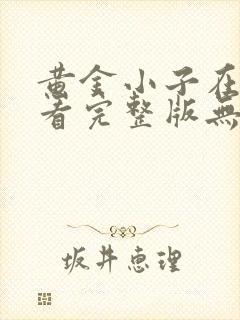 黄金小子在
看完整版無
坂井恵理